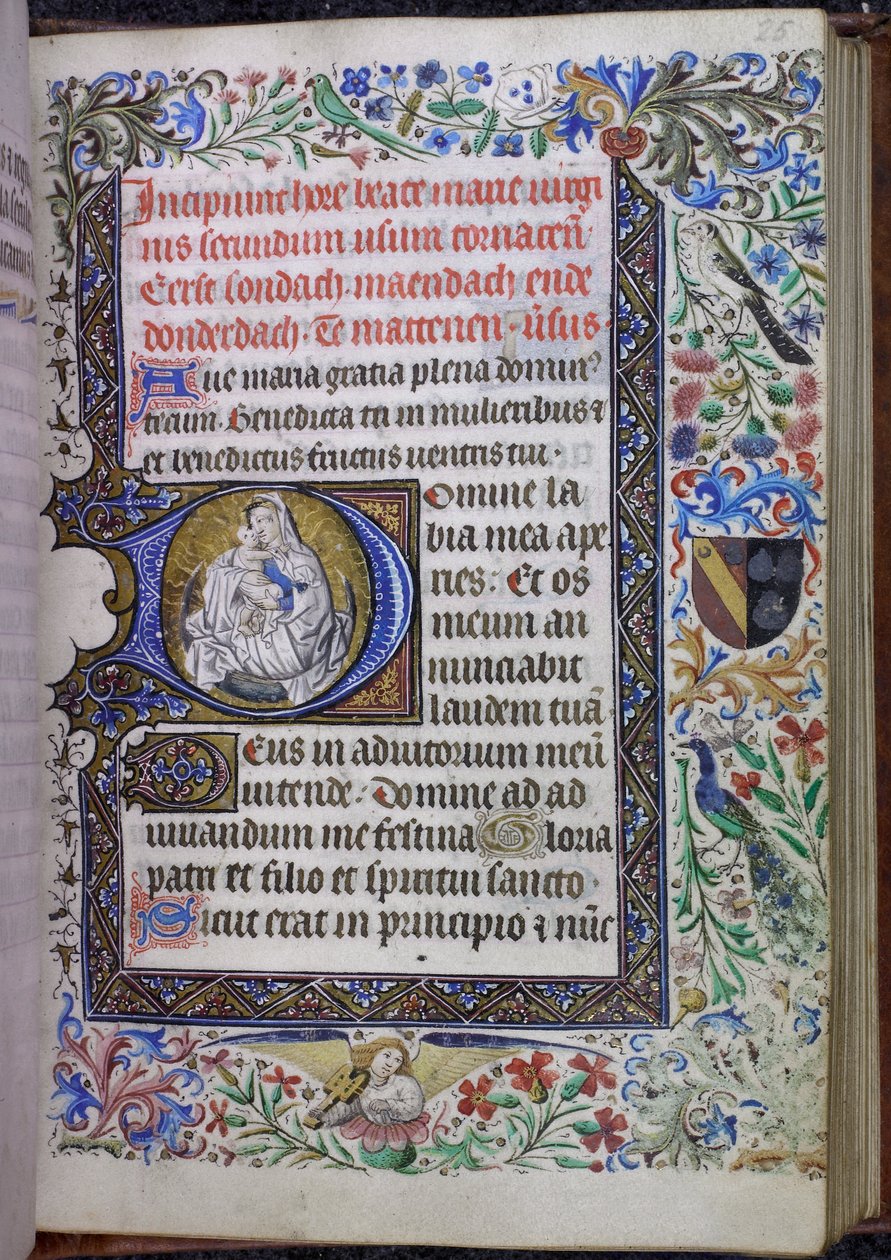 25
Incipiunt hore beate marie uirgi
nis secundum usum tornacen̄
Eerst sondach· maendach ende
donderdach· Te mattenen· ūsus·
Aue maria gratia plena domin⁹
tecum· Benedicta tu in mulieribus ⁊
et benedictus fructus uentris tui·
Domine la
bia mea ape
ries: Et os
meum an
nunciabit
laudem tuā·
Deus in adiutorium meū
intende· Domine ad ad
iuuandum me festina Gloria
patri et filio et spiritui sancto·
Sicut erat in principio ⁊ nūc